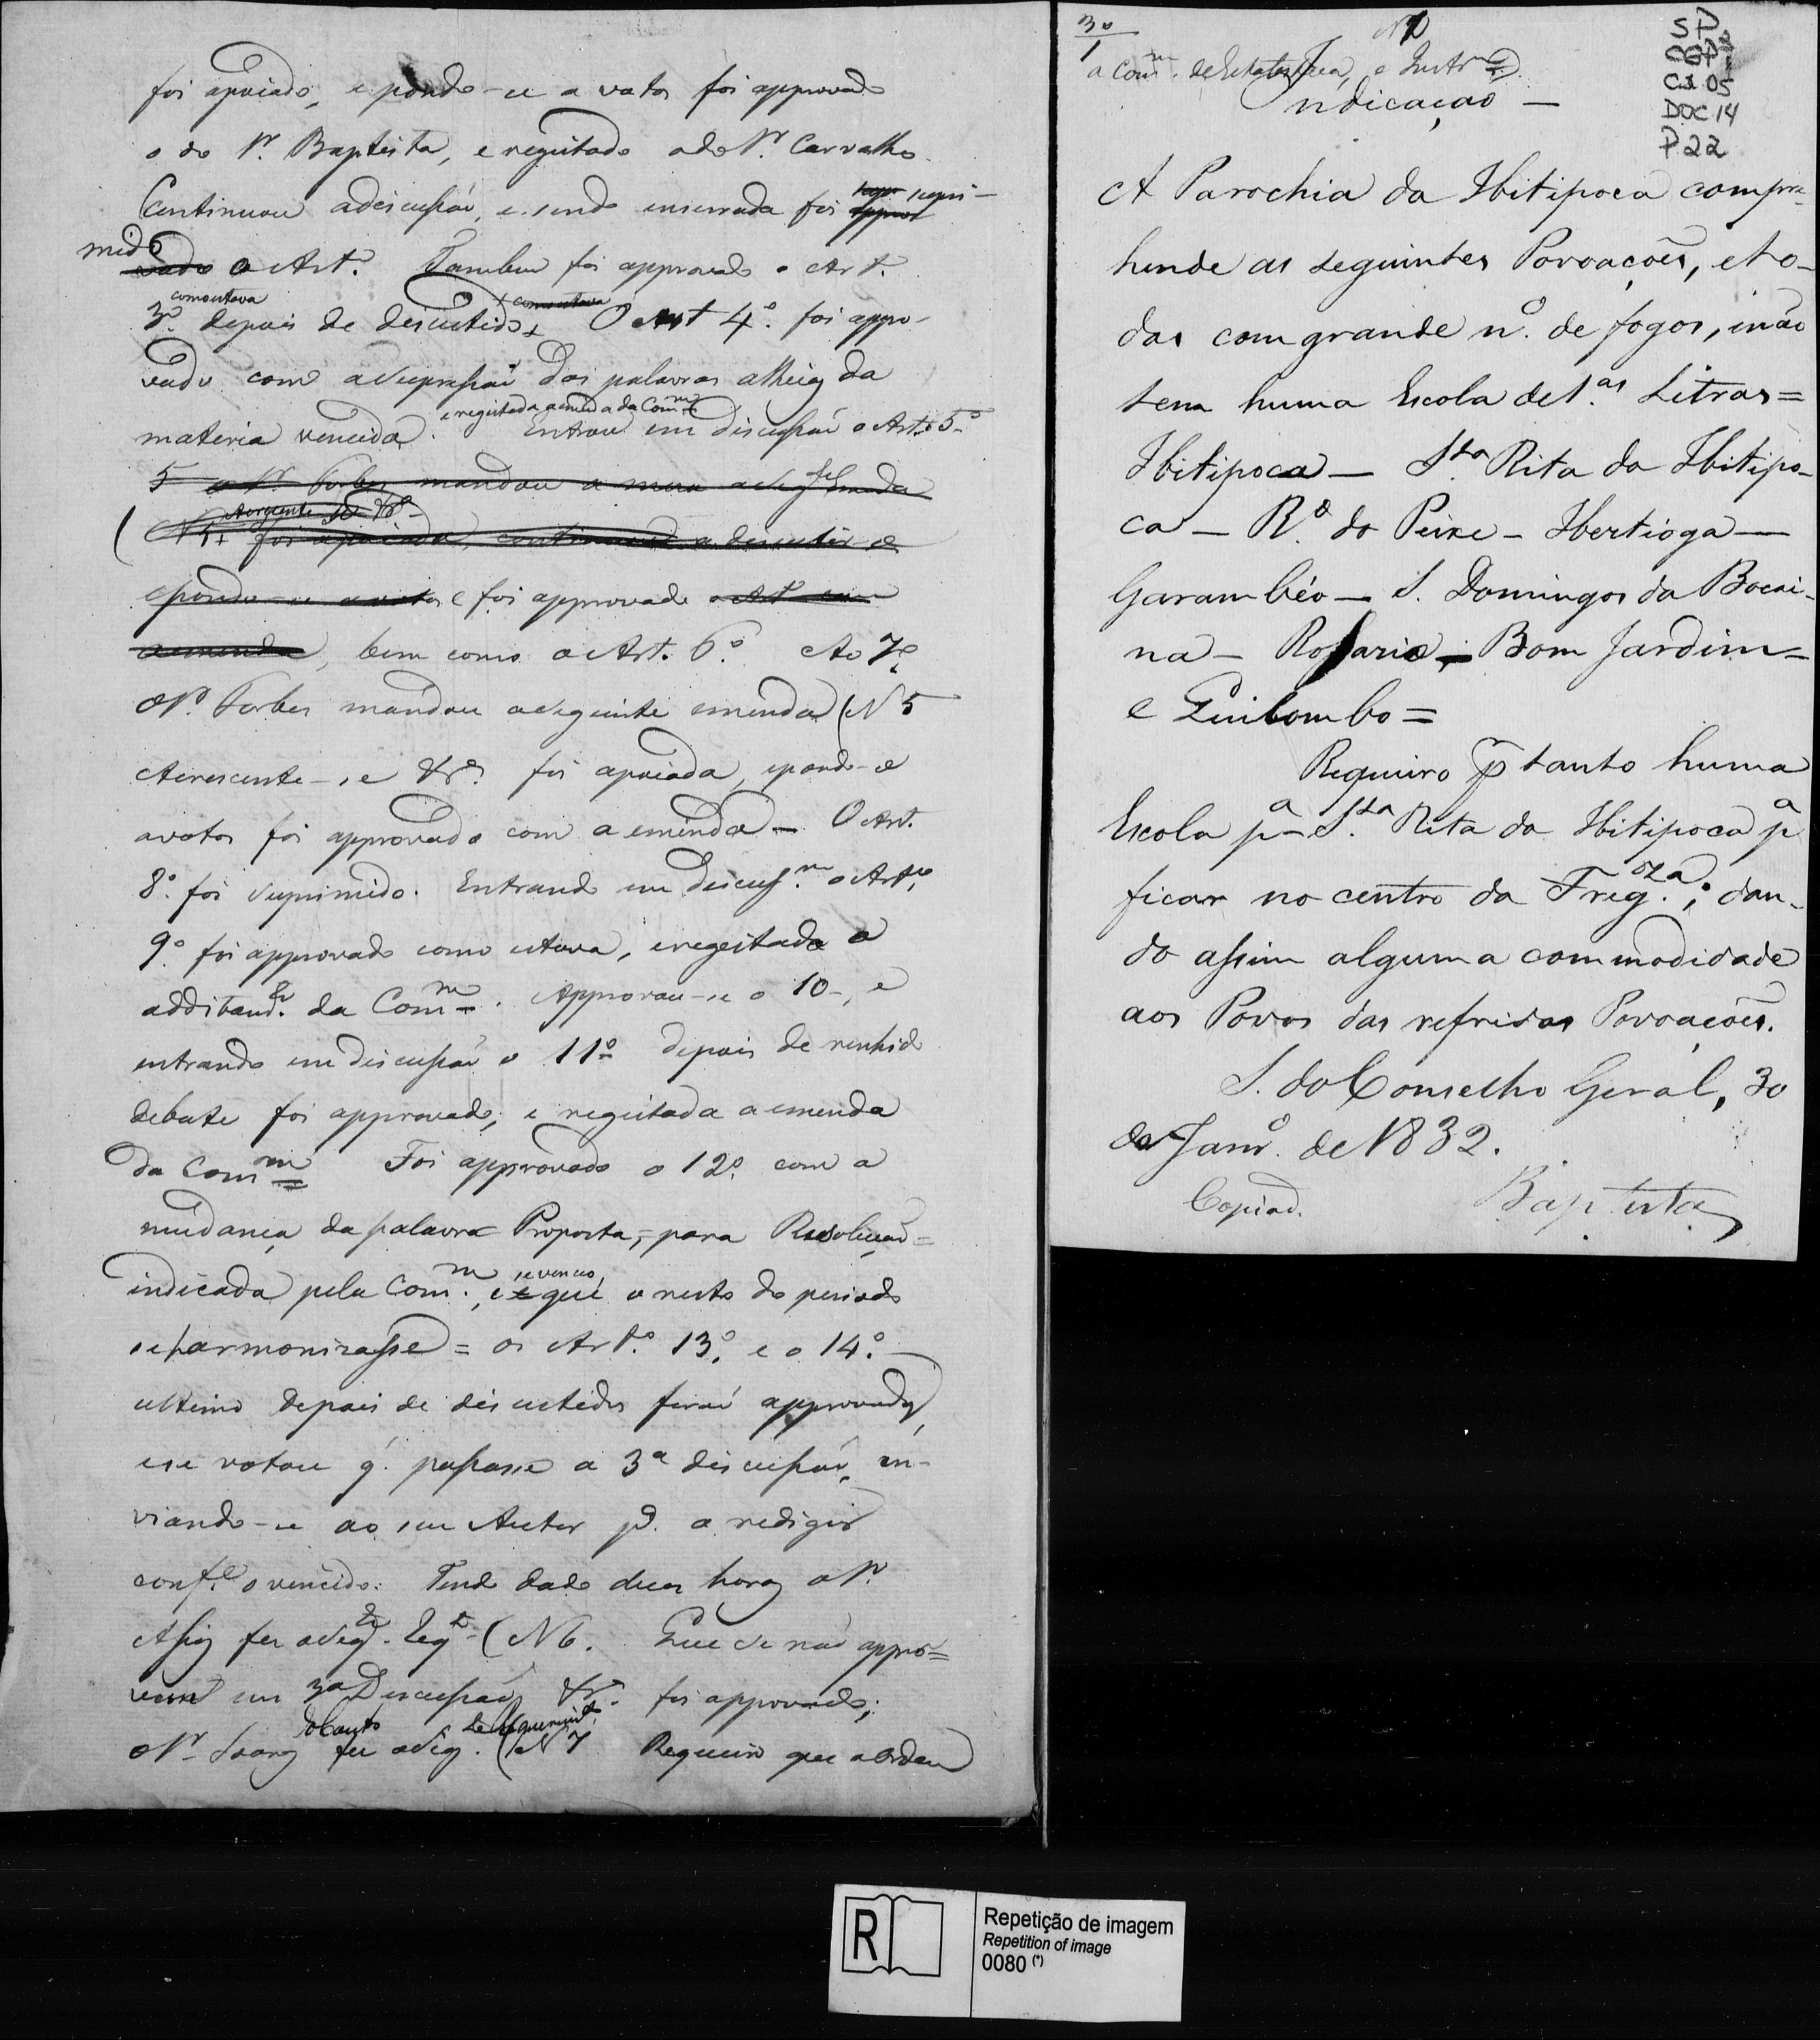 foi apoiado, e pondo-se a votos foi approvado
o do Sr. Baptista, e regeitado o do Sr. Carvalho
Continuou a discussão, e sendo encerrada foi supri-
mido o Art.º Tambem foi approvado o Art.
3º como estava depois de discutido. O Art 4º. foi appro-
vado com a supressão das palavras alheias da
materia vencida. e regeitada a emenda da Comm Entrou em discussão o Art. 5º
5 o Sr. Forbes mandou a mesa a seg.te Emenda
(N 5. Acrescente-se &ª foi apoiada, continuando a discutir-se
e pondo-se a votos e foi approvado o Art com
a emenda, bem como o Art. 6º. Ao 7º
o Sr. Forbes mandou a seguinte emenda (N 5
Acrescente-se &ª. foi apoiada, e pondo-se
a votos foi approvado com a emenda — O Art.
8º. foi suprimido. Entrando em discuss.m o Art.º
9º foi approvado como estava, e regeitado o
additam.to da Comm. Approvou-se o 10-, e
entrando em discussão o 11º depois de renhido
debate foi approvado, e regeitada a emenda
da Comm Foi approvado o 12º. com a
mudança da palavra Proposta, = para Resolução =
indicada pela Com.m, e se venceo, que o resto do periodo
se harmonizasse = os Art.º 13º. e o 14º. —
ultimo depois de discutidos forão approvados,
e se votou q. passasse a 3ª discussão, en-
viando-se ao seu Autor pª. a redigir
conf.e o vencido. Tendo dado duas horas o Sr.
Assis fez o seg.te Req.to (N 6. Que se não appro=
vem em 3ª Discussão &ª. foi approvado;
o Sr. Soares do Couto fez o seg. Requerim.to (N 7 Requeiro que a ordem
30
1
Nº
a Comm. de Estatistica, e Instr.m
Indicação —
SP
CGP1
CX 05
DOC 14
P.22
A Parochia da Ibitipoca compre-
hende as seguintes Povoações, e to-
das com grande nº. de fogos, e não
tem huma Escola de 1.as Letras =
Ibitipoca — S.ta Rita da Ibitipo-
ca — R.º do Peixe — Ibertioga —
Garambéo — S. Domingos da Bocai-
na — Rosario — Bom Jardim =
e Quilombo =
Requeiro p tanto huma
Escola pª S.ta Rita da Ibitipoca pª
ficar no centro da Freg.eza; dan-
do assim alguma commodidade
aos Povos das refridas Povoações.
S. do Conselho Geral, 30
de Janrº. de 1832.
Copiad. Baptista
R
Repetição de imagem
Repetition of image
0080 (*)